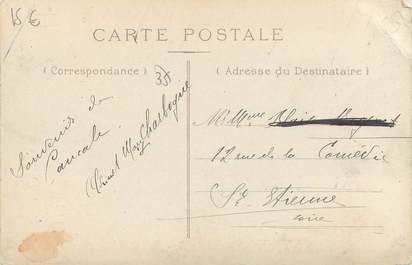 15 €
CARTE POSTALE
( Correspondance )
35
( Adresse du Destinataire )
Souvenir de
Cancale
Charbogne
12 rue de la Comédie
St. Etienne
Loire